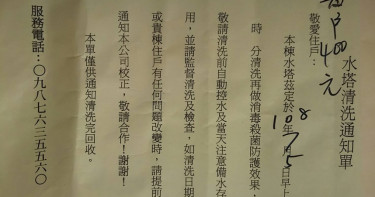 每戶400元
水塔清洗通知單
敬愛住戶：
本棟水塔茲定於108年7月5日早上
時　分清洗再做消毒殺菌防護效果，
敬請清洗前自動控水及當天注意備水存
用，並請監督清洗及檢查，如清洗日期
或貴棟住戶有任何問題改變時，請提前
通知本公司校正，敬請合作！謝謝！
本單僅供通知清洗完回收。
服務電話：〇九八七六三五五六〇